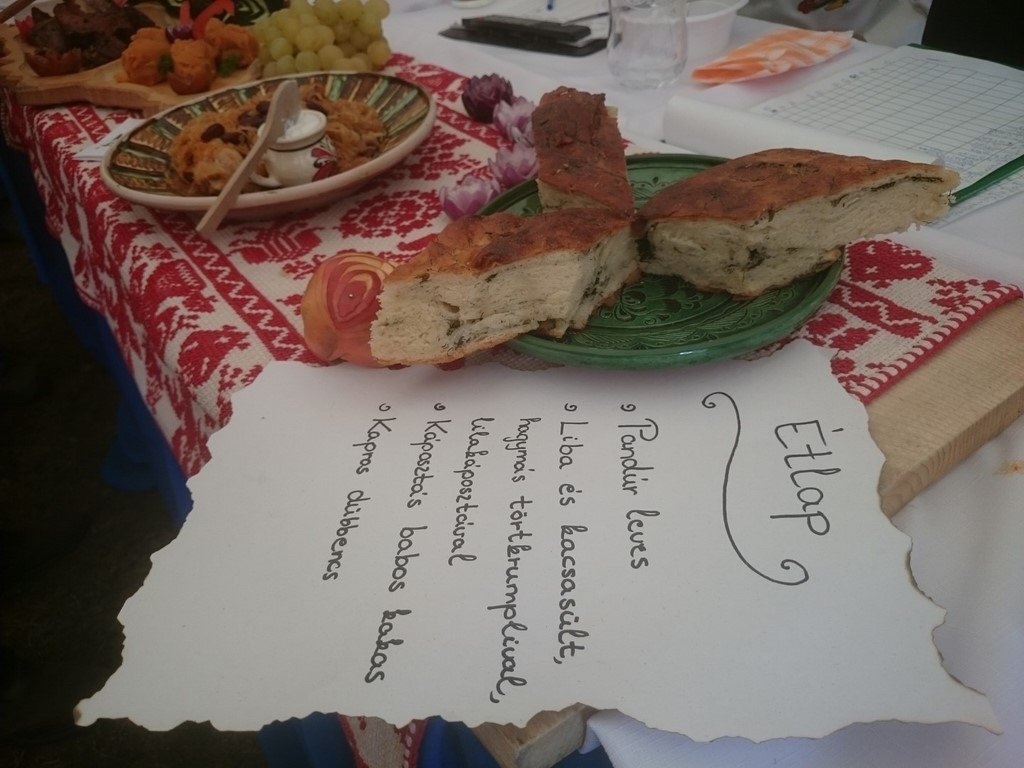 Étlap
Pandúr leves
Liba és kacsasült,
hagymás törtkrumplival,
lilakáposztával
Káposztás babos kakas
Kapros dübbencs